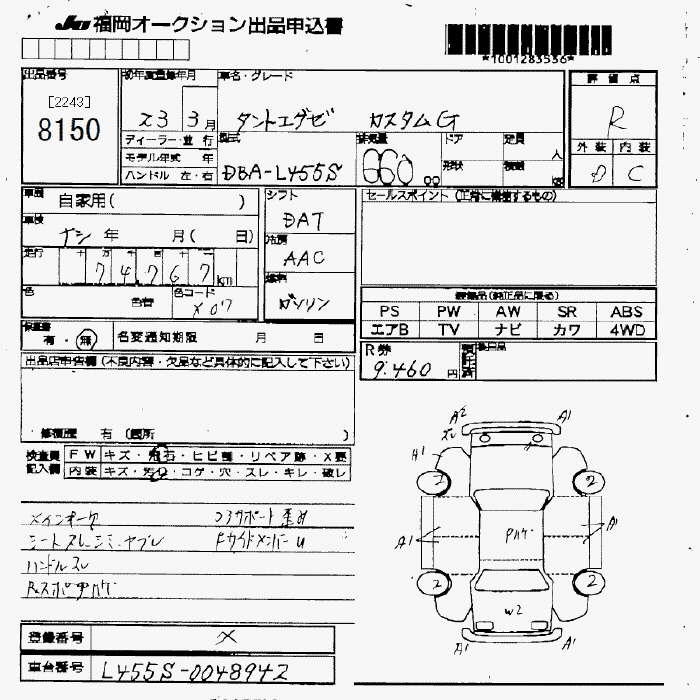 JU 福岡オークション出品申込書
*1001283536*
出品番号
[2243]
8150
初年度登録年月
23 3月
ディーラー・並行
モデル年式 年
ハンドル 左・右
車名・グレード
タントエグゼ カスタムG
型式
DBA-L455S
排気量
660 cc
ドア
形状
定員
人
積載
kg
評価点
R
外装 内装
D C
車歴
自家用( )
車検
ナシ 年 月( 日)
走行
十 万 千 百 十
7 4 7 6 7 km
色
色替
色コード
X07
シフト
DAT
冷房
AAC
燃料
ガソリン
セールスポイント (正常に機能するもの)
装備品(純正品に限る)
PS PW AW SR ABS
エアB TV ナビ カワ 4WD
保証書
有・無
名変通知期限 月 日
R券
9.460 円
後日品
出品店申告欄 (不良内容・欠品など具体的に記入して下さい)
修復歴 有 (箇所 )
検査員
記入欄
FW キズ・飛石・ヒビ割・リペア跡・X要
内装 キズ・汚れ・コゲ・穴・スレ・キレ・破レ
コアサポート歪み
シートスレ、シミ、ヤブレ FサイドメンバーU
ハンドルスレ
A2
ズレ
A1
A1
2 2
A1 Pハゲ A1
2 2
W2
A1 A1
登録番号 メ
車台番号 L455S-0048942